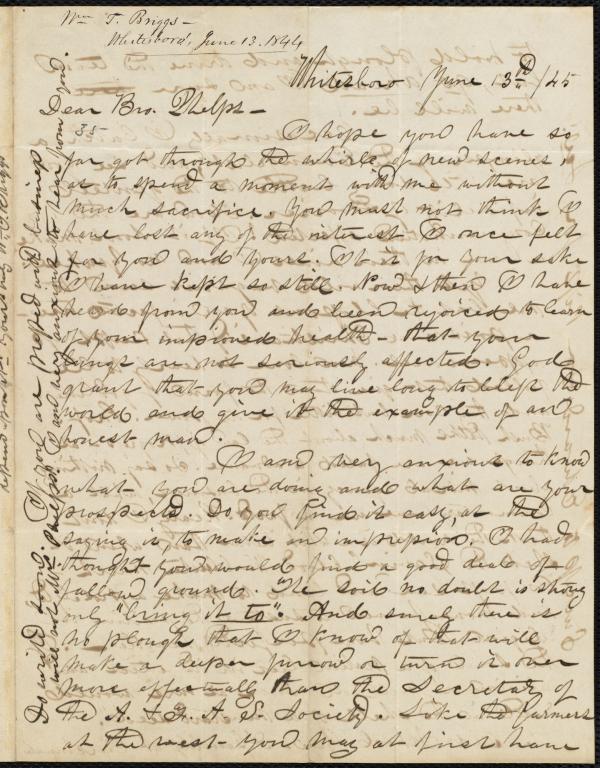 Wm T. Briggs—
Whitesboro', June 13. 1844
Whitesboro June 13th /45
Dear Bro. Phelps—
35
I hope you have so
far got through the whirl of new scenes
as to spend a moment with me without
much sacrifice. You must not think I
have lost any of the interest I once felt
for you and yours. It is for your sake
I have kept so still. Now & then I have
heard from you and been rejoiced to learn
of your improved health— that your
lungs are not seriously affected. God
grant that you may live long to bless the
world and give it the example of an
honest man.
I am very anxious to know
what you are doing and what are your
prospects. Do you find it easy, as the
saying is, to make an impression. I had
thought you would find a good deal of
fallow ground. The soil no doubt is strong
only "bring it to". And surely there is
no plough that I know of that will
make a deeper furrow or turn it over
more effectually than the Secretary of
the A. & F. A. S. Society. Like the farmers
at the west— you may at first have
Do write soon. If you are pressed with business
will not Mrs Phelps. I am very anxious to hear from you.